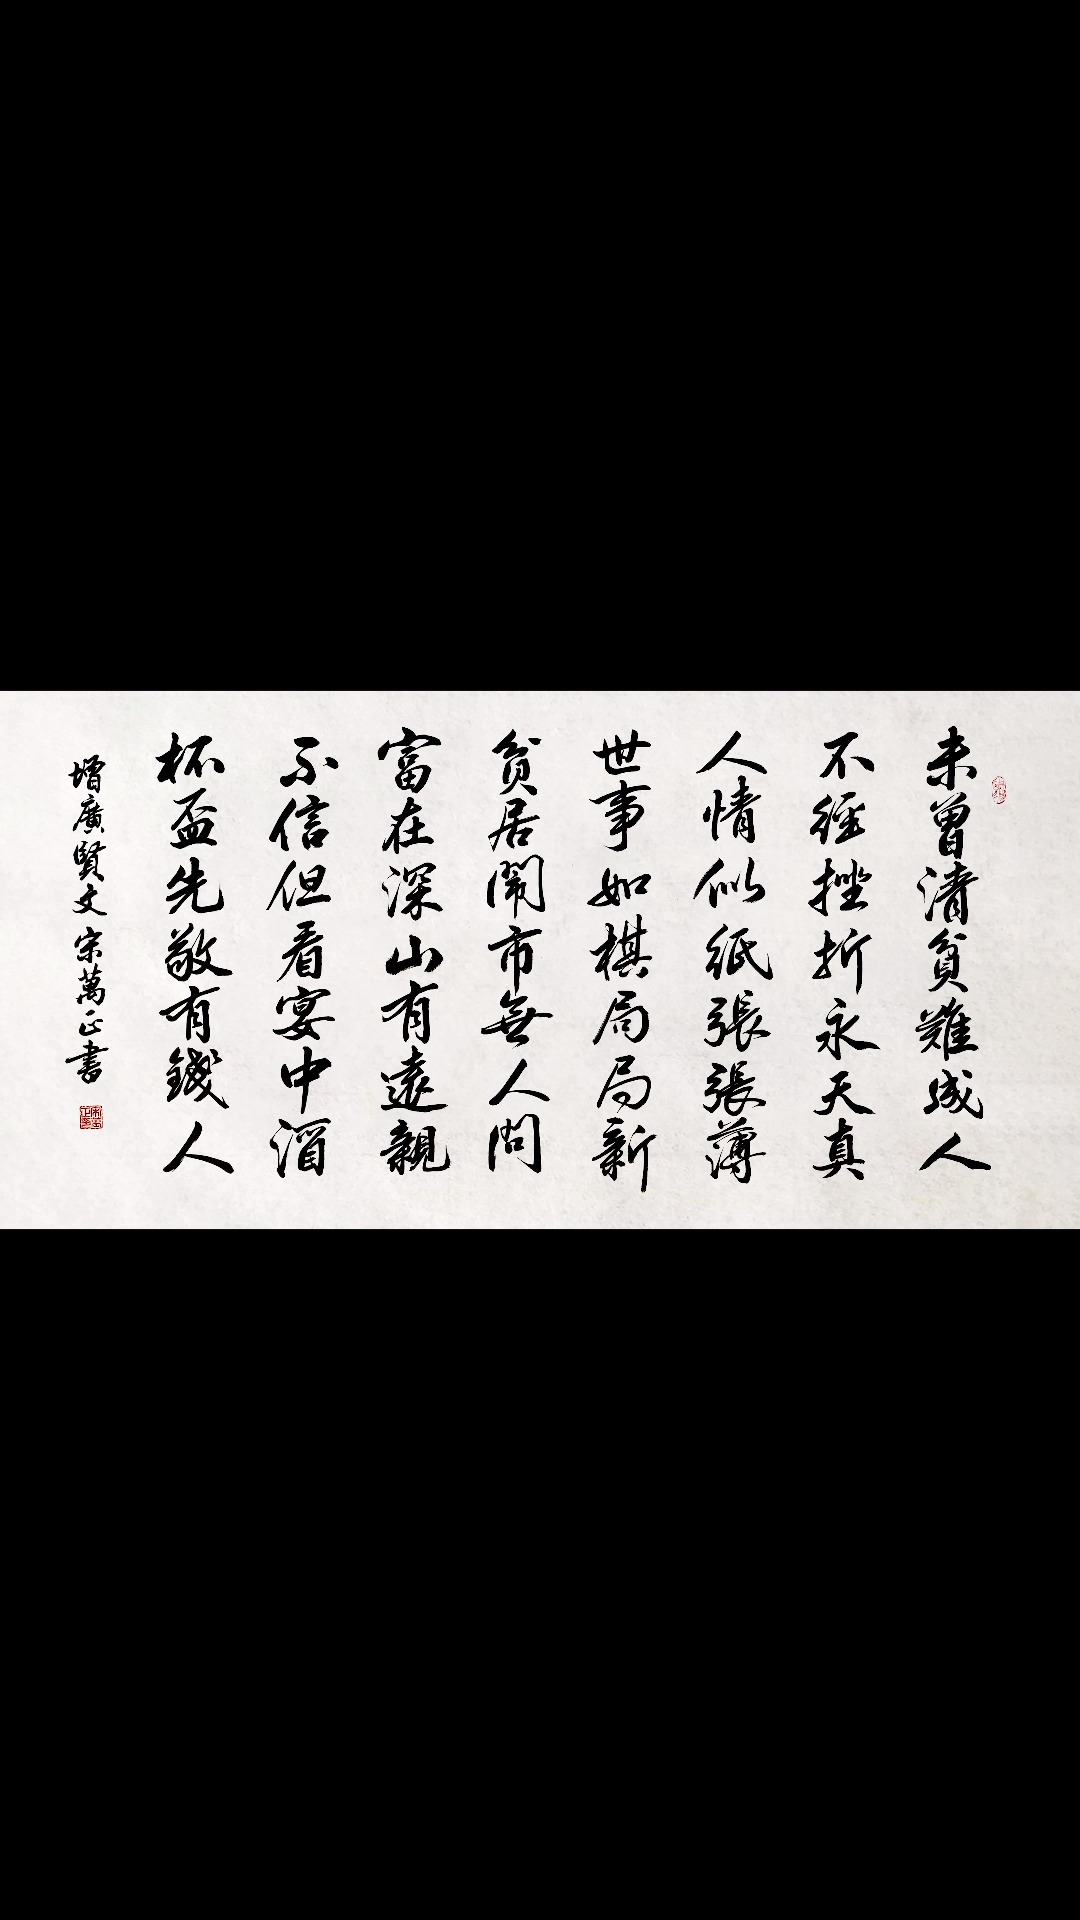 未曾清貧難成人
不經挫折永天真
人情似紙張張薄
世事如棋局局新
貧居鬧市無人問
富在深山有遠親
不信但看宴中酒
杯盃先敬有錢人
增廣賢文宋萬正書